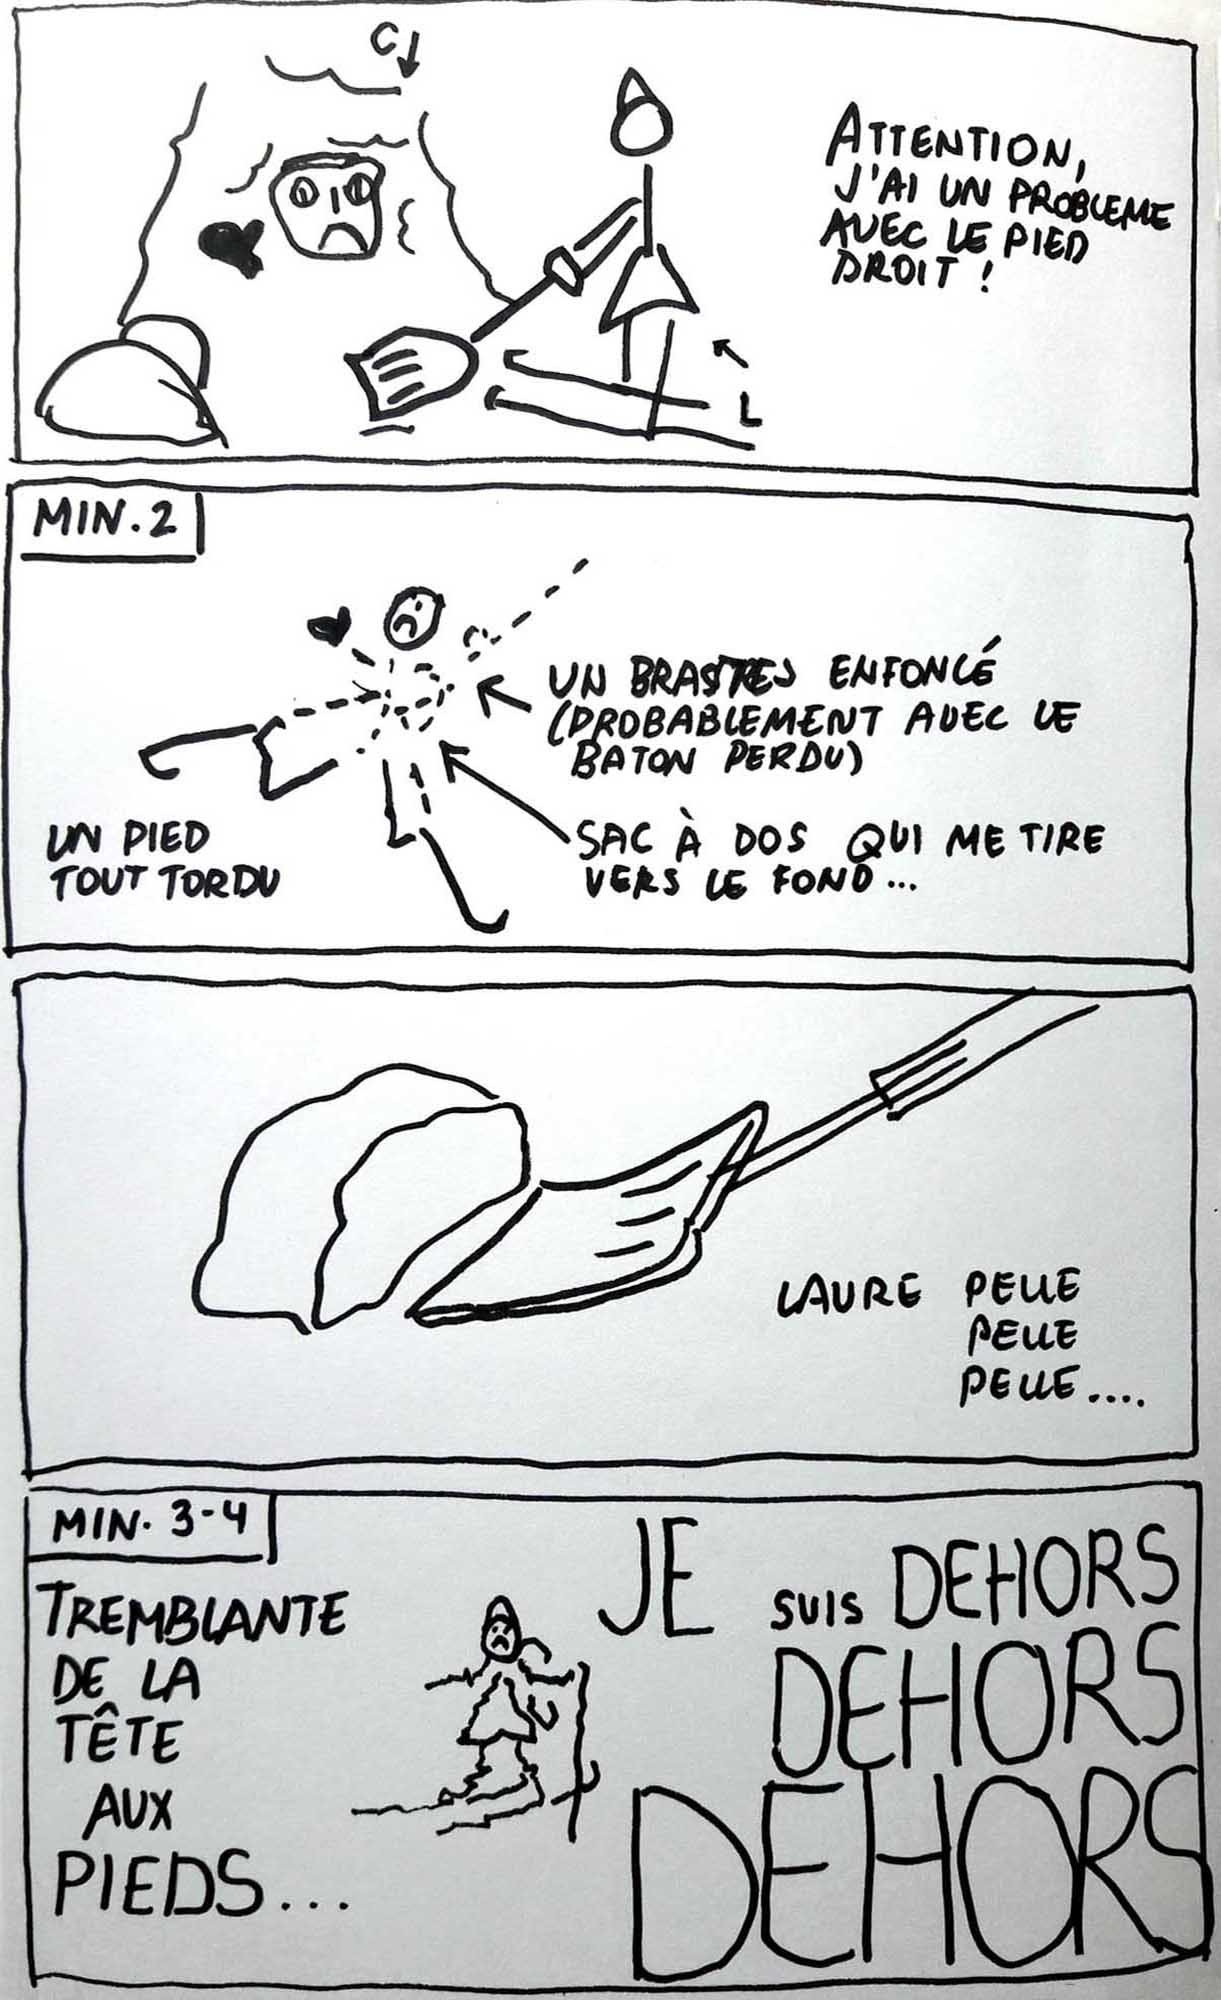 C
ATTENTION,
J'AI UN PROBLEME
AVEC LE PIED
DROIT !
L
MIN. 2
UN BRAS TRES ENFONCÉ
(PROBABLEMENT AVEC LE
BATON PERDU)
SAC À DOS QUI ME TIRE
VERS LE FOND...
UN PIED
TOUT TORDU
LAURE PELLE
PELLE
PELLE....
MIN. 3-4
TREMBLANTE
DE LA
TÊTE
AUX
PIEDS...
JE SUIS DEHORS
DEHORS
DEHORS